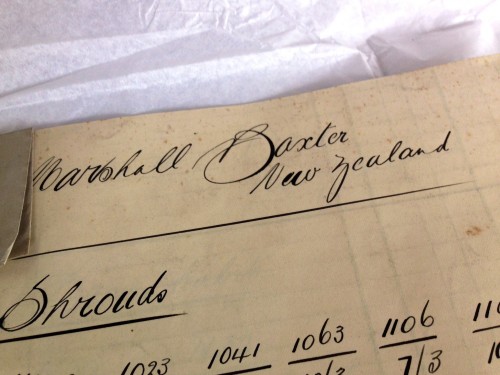 Marshall Baxter
New Zealand
Shrouds
1023 1041 1063 1106
7/3